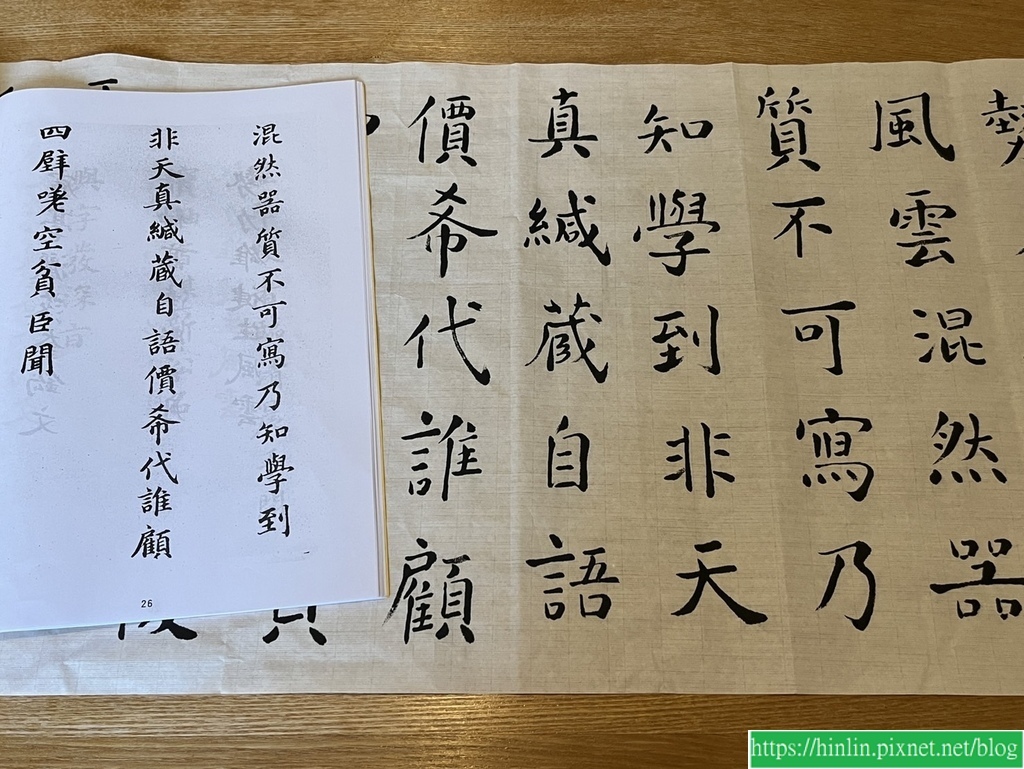 混然器質不可寫乃知學到
非天真緘藏自語價希代誰顧
四壁嗟空貧臣聞
26
風雲混然器
質不可寫乃
知學到非天
真緘藏自語
價希代誰顧
https://hinlin.pixnet.net/blog